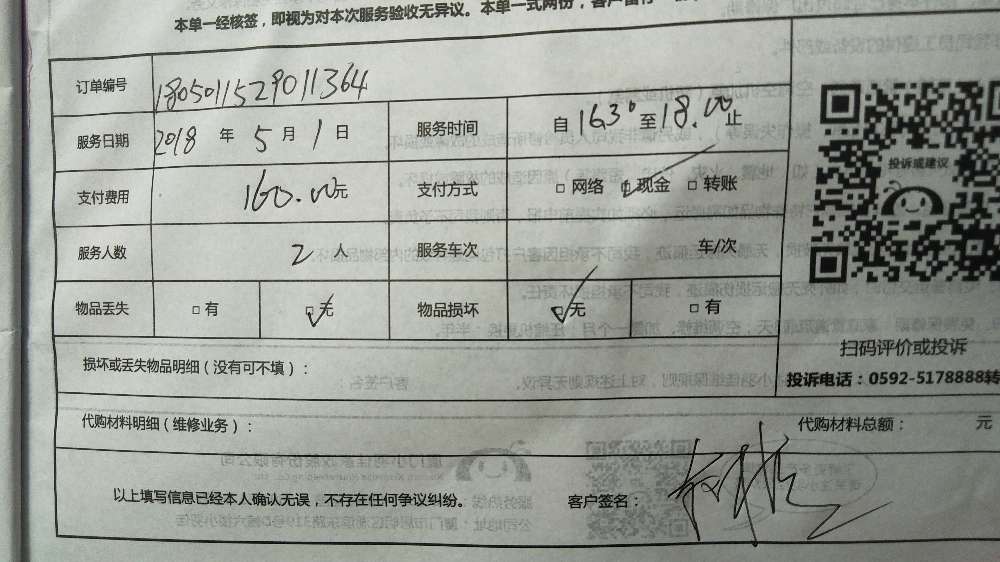 本单一经核签，即视为对本次服务验收无异议。本单一式两份，客户留存一
订单编号 1805011529011364
服务日期 2018 年 5 月 1 日 服务时间 自 16.30 至 18.00 止
支付费用 160.00元 支付方式 □ 网络 □ 现金 □ 转账
服务人数 2 人 服务车次 车/次
物品丢失 □ 有 □ 无 物品损坏 □ 无 □ 有
投诉或建议
扫码评价或投诉
损坏或丢失物品明细（没有可不填）：
投诉电话：0592-5178888转
代购材料明细（维修业务）： 代购材料总额： 元
以上填写信息已经本人确认无误，不存在任何争议纠纷。 客户签名：